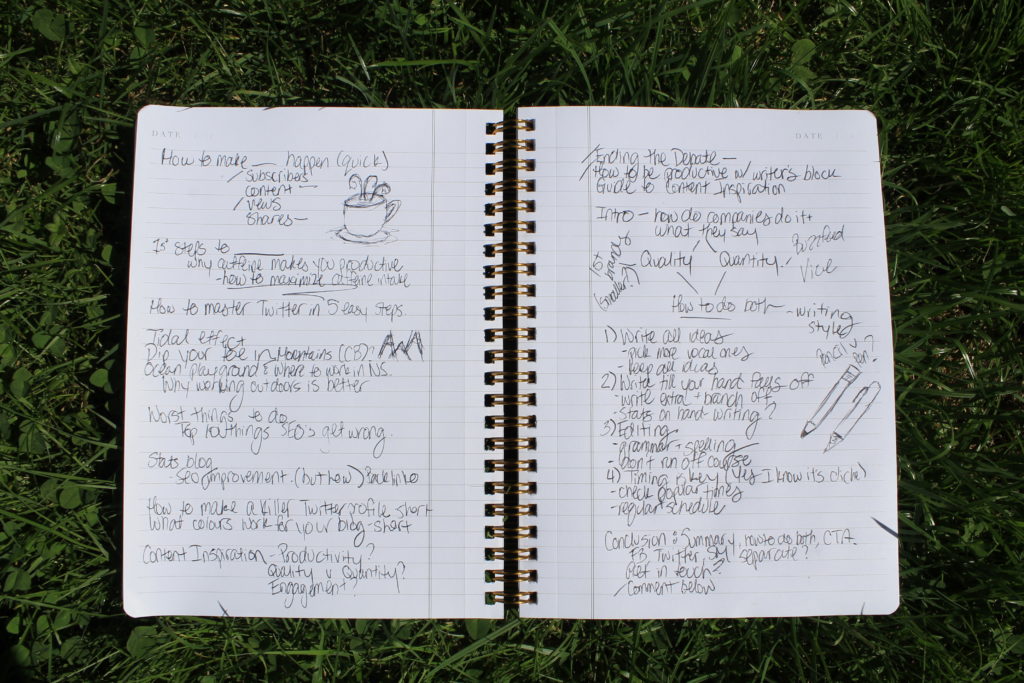 DATE
How to make — happen (quick)
subscribers
content —
views
shares —
13 steps to
why caffeine makes you productive
- how to maximize caffeine intake
How to master Twitter in 5 easy steps.
Tidal effect
Dip your toe in Mountains (CB)?
Ocean playground & where to work in NS.
Why working outdoors is better
Worst things to do
Top 10 things SEO's get wrong.
Stats blog
- seo improvement. (but how) Back links
How to make a killer Twitter profile short
What colours work for your blog - short
Content Inspiration - Productivity?
Quality v Quantity?
Engagement?
DATE
Ending the Debate —
How to be productive w/ writer's block
Guide to Content Inspiration
Intro - how do companies do it +
what they say
Buzzfeed
Vice
Quality Quantity
How to do both - writing
styles
1) Write all ideas
- pick more vocal ones
- keep all ideas
Pencil v
Pen?
2) Write till your hand falls off
- write extra + branch off
- Stats on hand writing?
3) Editing
- grammar + spelling
- don't run off course
4) Timing is key (Yes I know it's cliche)
- check popular times
- regular schedule
Conclusion : Summary, how to do both, CTA.
FB, Twitter, separate?
Get in touch?
Comment below